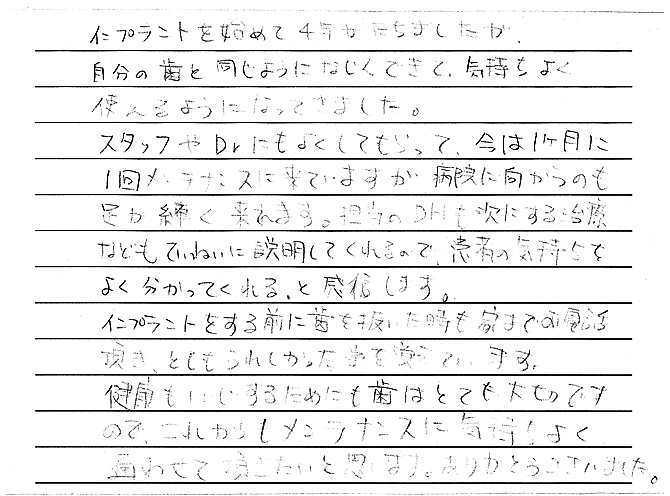 インプラントを始めて4年がたちましたが、
自分の歯と同じようになじんできて、気持ちよく
使えるようになってきました。
スタッフやDrにもよくしてもらって、今は1ヶ月に
1回メンテナンスに来ていますが病院に向かうのも
足が軽く来れます。担当のDHも次にする治療
などもていねいに説明してくれるので、患者の気持ちを
よく分かってくれる、と感信します。
インプラントをする前に歯を抜いた時も家までお電話
頂き、とてもうれしかった事を覚えています。
健康もいじするためにも歯はとても大切です
ので、これからもメンテナンスに気持ちよく
通わせて頂きたいと思います。ありがとうございました。